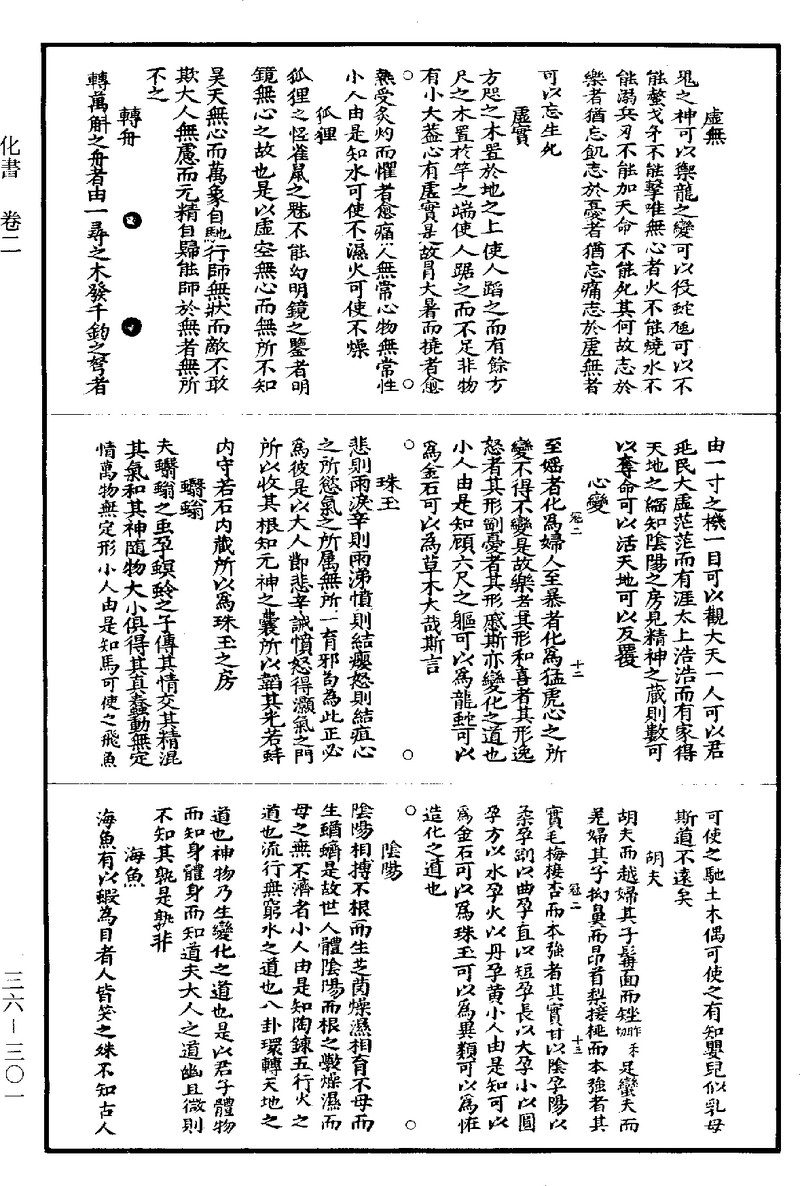 化書　卷二
三六－三〇一
虛無
鬼之神可以禦龍之變可以役蛇虺可以不
能螫戈矛不能擊唯無心者火不能燒水不
能溺兵刃不能加天命不能死其何故志於
樂者猶忘飢志於憂者猶忘痛志於虛無者
可以忘生死
虛實
方咫之木置於地之上使人蹈之而有餘方
尺之木置於竿之端使人踞之而不足非物
有小大蓋心有虛實是故冐大暑而撓者愈
熱受炙灼而懼者愈痛人無常心物無常性
小人由是知水可使不濕火可使不燥
狐狸
狐狸之怪雀鼠之魅不能幻明鏡之鑒者明
鏡無心之故也是以虛空無心而無所不知
昊天無心而萬象自馳行師無狀而敵不敢
欺大人無慮而元精自歸能師於無者無所
不之
轉舟
轉萬斛之舟者由一尋之木發千鈞之弩者
由一寸之機一目可以觀大天一人可以君
兆民大虛茫茫而有涯太上浩浩而有家得
天地之綱知陰陽之房見精神之藏則數可
以奪命可以活天地可以反覆
心變
至婬者化為婦人至暴者化為猛虎心之所
冠二　十二
變不得不變是故樂者其形和喜者其形逸
怒者其形剛憂者其形慼斯亦變化之道也
小人由是知顧六尺之軀可以為龍蛇可以
為金石可以為草木大哉斯言
珠玉
悲則雨淚辛則雨涕憤則結癭怒則結疽心
之所慾氣之所屬無所不育邪苟為此正必
為彼是以大人節悲辛誡憤怒得灝氣之門
所以收其根知元神之囊所以韜其光若蚌
內守若石內藏所以為珠玉之房
蠮螉
夫蠮螉之虫孕螟蛉之子傳其情交其精混
其氣和其神隨物大小俱得其真蠢動無定
情萬物無定形小人由是知馬可使之飛魚
可使之馳土木偶可使之有知嬰兒似乳母
斯道不遠矣
胡夫
胡夫而越婦其子髯面而矬足蠻夫而
羌婦其子拗鼻而昂首梨接桃而本強者其
實毛梅接杏而本強者其實甘以陰孕陽以
冠二　十三
柔孕剛以曲孕直以短孕長以大孕小以圓
孕方以水孕火以丹孕黃小人由是知可以
為金石可以為珠玉可以為異類可以為恠
造化之道也
陰陽
陰陽相搏不根而生芝菌燥濕相育不母而
生蝤蠐是故世人體陰陽而根之斆燥濕而
母之無不濟者小人由是知陶鍊五行火之
道也流行無窮水之道也八卦環轉天地之
道也神物乃生變化之道也是以君子體物
而知身體身而知道夫大人之道幽且微則
不知其孰是孰非
海魚
海魚有以蝦為目者人皆笑之殊不知古人